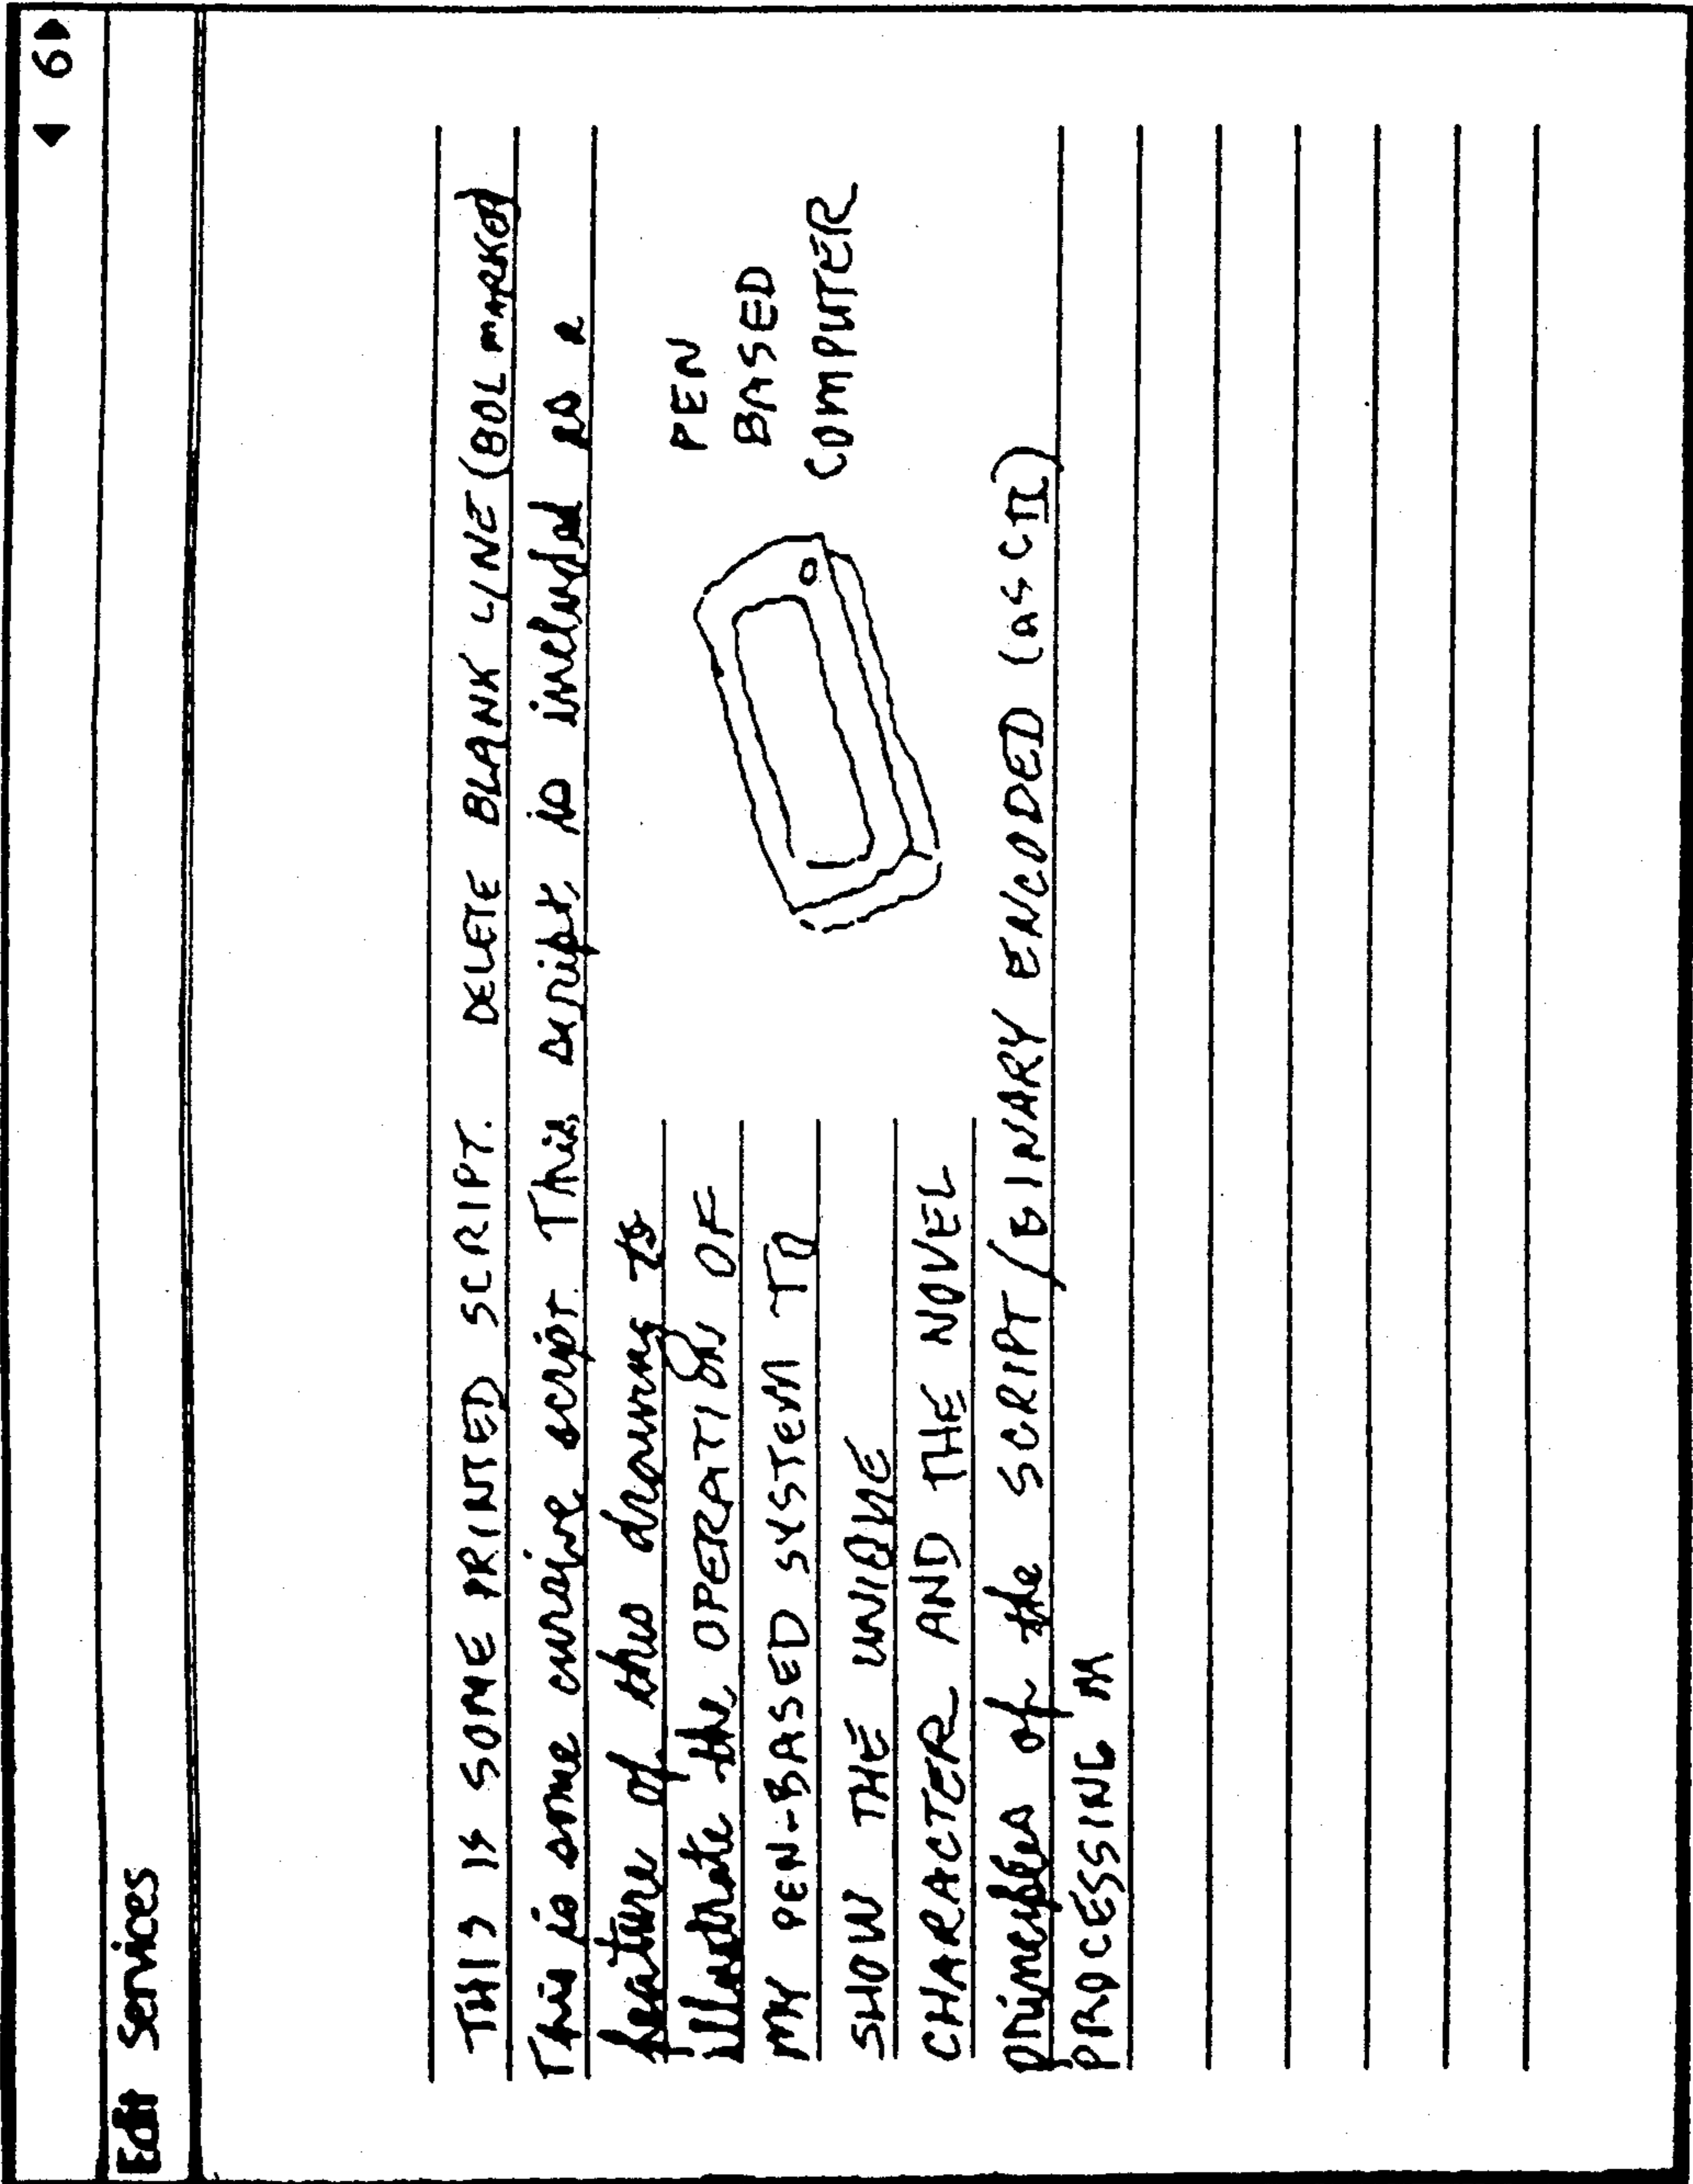 ◀ 6▶
Edit Services
THIS IS SOME PRINTED SCRIPT. DELETE BLANK LINE (BOL MARKED)
This is some cursive script. This script is included as a
feature of this drawing to
illustrate the OPERATION OF
MY PEN-BASED SYSTEM TO
SHOW THE UNIQUE
CHARACTER AND THE NOVEL
principles of the SCRIPT/BINARY ENCODED (ASCII)
PROCESSING M
PEN
BASED
COMPUTER